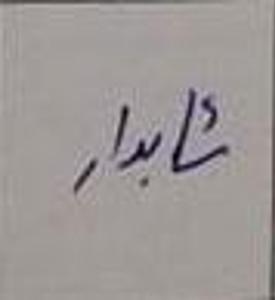 شابدار